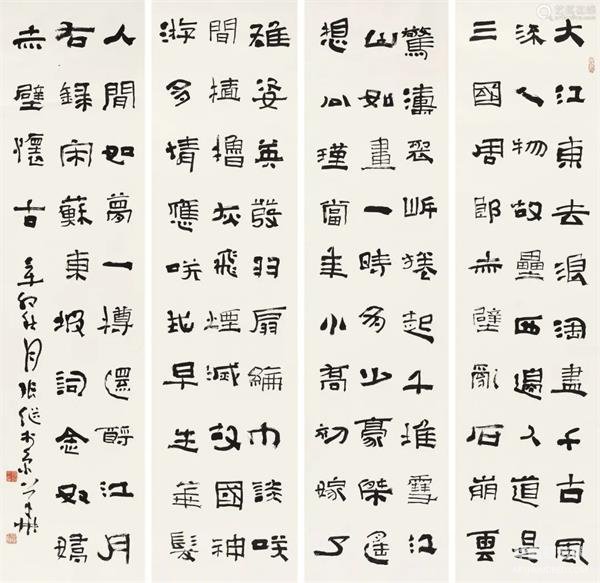 大江東去浪淘盡千古風
流人物故壘西邊人道是
三國周郎赤壁亂石崩雲
驚濤裂岸捲起千堆雪江
山如畫一時多少豪傑遙
想公瑾當年小喬初嫁了
雄姿英發羽扇綸巾談咲
間檣櫓灰飛煙滅故國神
游多情應咲我早生華髮
人間如夢一樽還酹江月
右録宋蘇東坡詞念奴嬌
赤壁懷古 辛卯秋月張继書於京